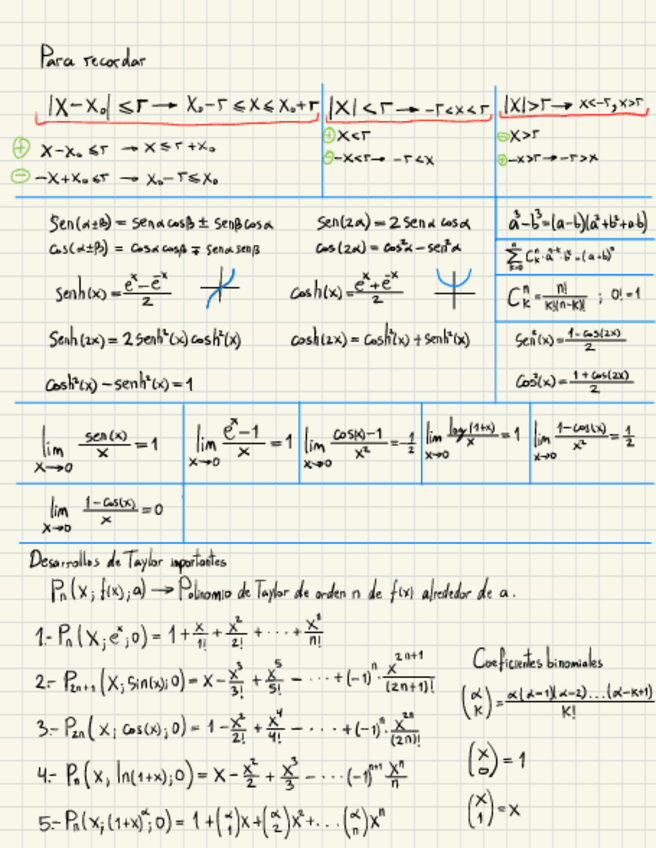 Para recordar
|x-x₀| ≤ r → x₀-r ≤ x ≤ x₀+r
⊕ x-x₀ ≤ r → x ≤ r+x₀
⊖ -x+x₀ ≤ r → x₀-r ≤ x₀
|x| < r → -r<x<r
⊕ x<r
⊖ -x<r → -r<x
|x|>r → x<-r, x>r
⊖ x>r
⊕ -x>r → -r>x
Sen(α±β) = senα cosβ ± senβ cosα
Sen(2α) = 2 senα cosα
Cos(α±β) = cosα cosβ ∓ senα senβ
cos(2α) = cos²α - sen²α
Senh(x) = (eˣ - e⁻ˣ)/2
Cosh(x) = (eˣ + e⁻ˣ)/2
Senh(2x) = 2 senh²(x) cosh²(x)
cosh(2x) = cosh²(x) + senh²(x)
Cosh²(x) - senh²(x) = 1
a³-b³ = (a-b)(a²+b²+a·b)
C_K^n = n!/(K!(n-K)!) ; 0! = 1
Sen²(x) = (1-cos(2x))/2
Cos²(x) = (1+cos(2x))/2
lim x→0 sen(x)/x = 1
lim x→0 (eˣ-1)/x = 1
lim x→0 (cos(x)-1)/x² = -1/2
lim x→0 log(1+x)/x = 1
lim x→0 (1-cos(x))/x² = 1/2
lim x→0 (1-cos(x))/x = 0
Desarrollos de Taylor importantes
Pn(x; f(x); a) → Polinomio de Taylor de orden n de f(x) alrededor de a.
1.- Pn(x; eˣ; 0) = 1 + x/1! + x²/2! + ··· + xⁿ/n!
2.- P2n+1(x; sin(x); 0) = x - x³/3! + x⁵/5! - ··· + (-1)ⁿ · x²ⁿ⁺¹/(2n+1)!
3.- P2n(x; cos(x); 0) = 1 - x²/2! + x⁴/4! - ··· + (-1)ⁿ · x²ⁿ/(2n)!
4.- Pn(x, ln(1+x); 0) = x - x²/2 + x³/3 - ··· (-1)ⁿ⁺¹ xⁿ/n
5.- Pn(x; (1+x)^α; 0) = 1 + (α 1)x + (α 2)x² + ... (α n)xⁿ
Coeficientes binomiales
(α K) = α(α-1)(α-2)...(α-K+1)/K!
(x 0) = 1
(x 1) = x